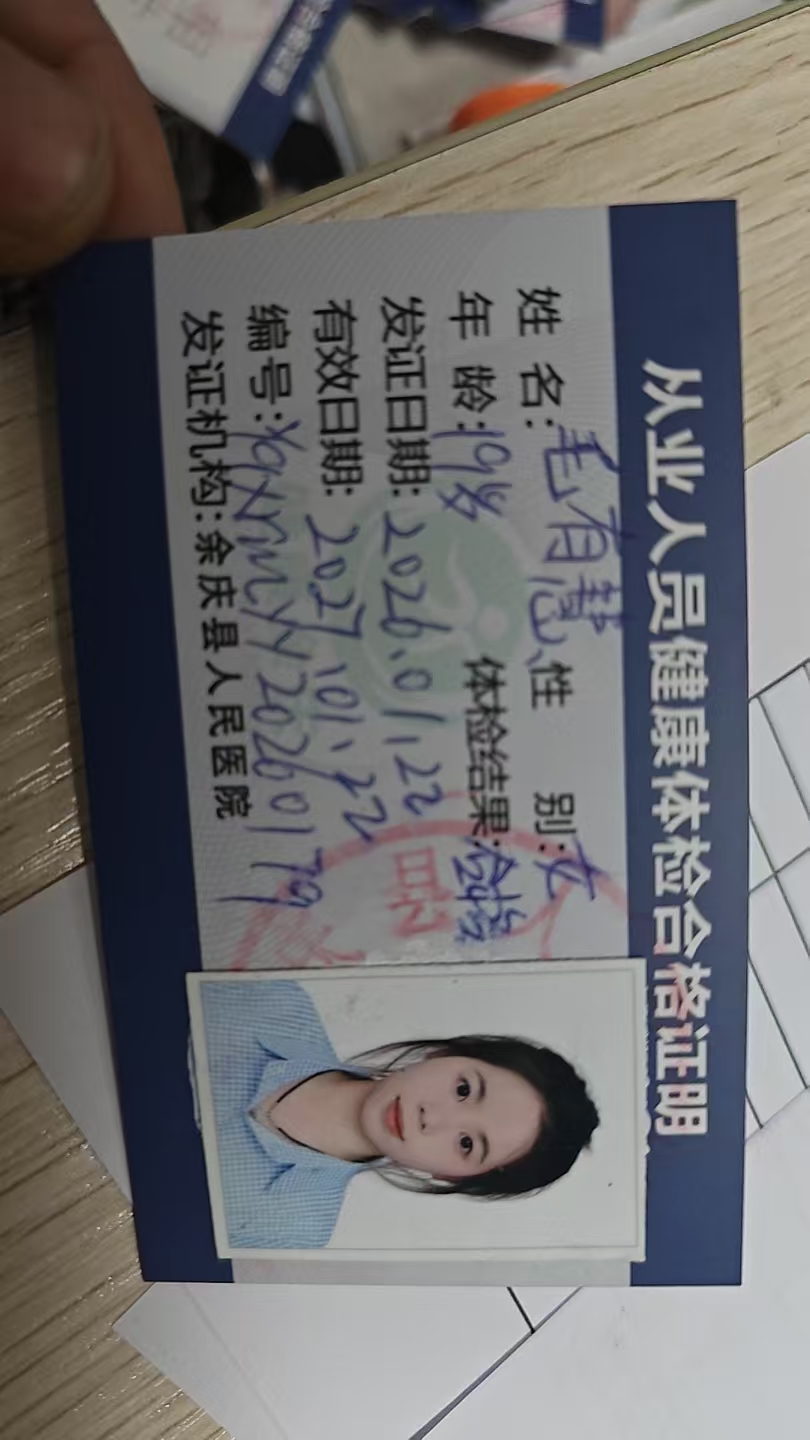 从业人员健康体检合格证明
姓 名：毛有慧 性 别：女
年 龄：19岁 体检结果：合格
发证日期：2026.01.22
有效日期：2027.01.22
编号：YQXRMYY20260179
发证机构：余庆县人民医院